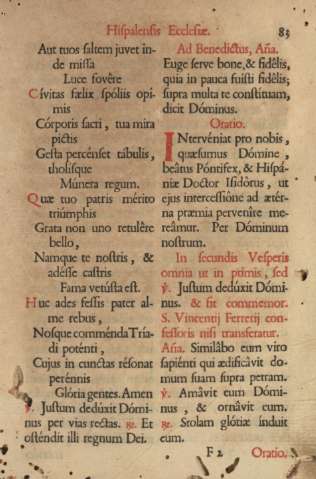 Hispalensis Ecclesiæ. 83
Aut tuos saltem juvet in-
de missa
Luce fovêre
Cívitas fælix spóliis opi-
mis
Córporis sacri, tua mira
pictis
Gesta percénset tabulis,
tholisque
Múnera regum.
Quæ tuo patris mérito
triúmphis
Grata non uno retulêre
bello,
Namque te nostris, &
adésse castris
Fama vetústa est.
Huc ades fessis pater al-
me rebus,
Nosque comménda Tría-
di poténti,
Cujus in cunctas résonat
perénnis
Glória gentes. Amen
℣. Justum dedúxit Dómi-
nus per vias rectas. ℟. Et
osténdit illi regnum Dei.
Ad Benedíctus, Aña.
Euge serve bone, & fidêlis,
quia in pauca fuísti fidêlis;
supra multa te constítuam,
dicit Dóminus.
Oratio.
INtervéniat pro nobis,
quæsumus Dómine,
beátus Póntifex, & Hispá-
niæ Doctor Isidórus, ut
ejus intercessiône ad ætér-
na præmia pervenîre me-
reâmur. Per Dóminum
nostrum.
In secundis Vesperis
omnia ut in primis, sed
℣. Justum dedúxit Dómi-
nus. & fit commemor.
S. Vincentij Ferrerij con-
fessoris nisi transferatur.
Aña. Similâbo eum viro
sapiénti qui ædificâvit do-
mum suam supra petram.
℣. Amâvit eum Dómi-
nus, & ornâvit eum.
℟. Stolam glóriæ índuit
eum.
F 2 Oratio.